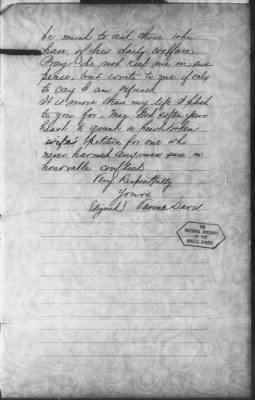 be much to ask those who
have of his daily welfare.
Pray do not keep me in sus
pense, but write to me if only
to say I am refused.
It is more than my life I plead
to you for. May God soften your
heart to grant a heartbroken
wife's petition for one who
never harmed any man save in
honorable conflict.
Very Respectfully
Yours
(signed) Varina Davis
THE
NATIONAL ARCHIVES
OF THE
UNITED STATES